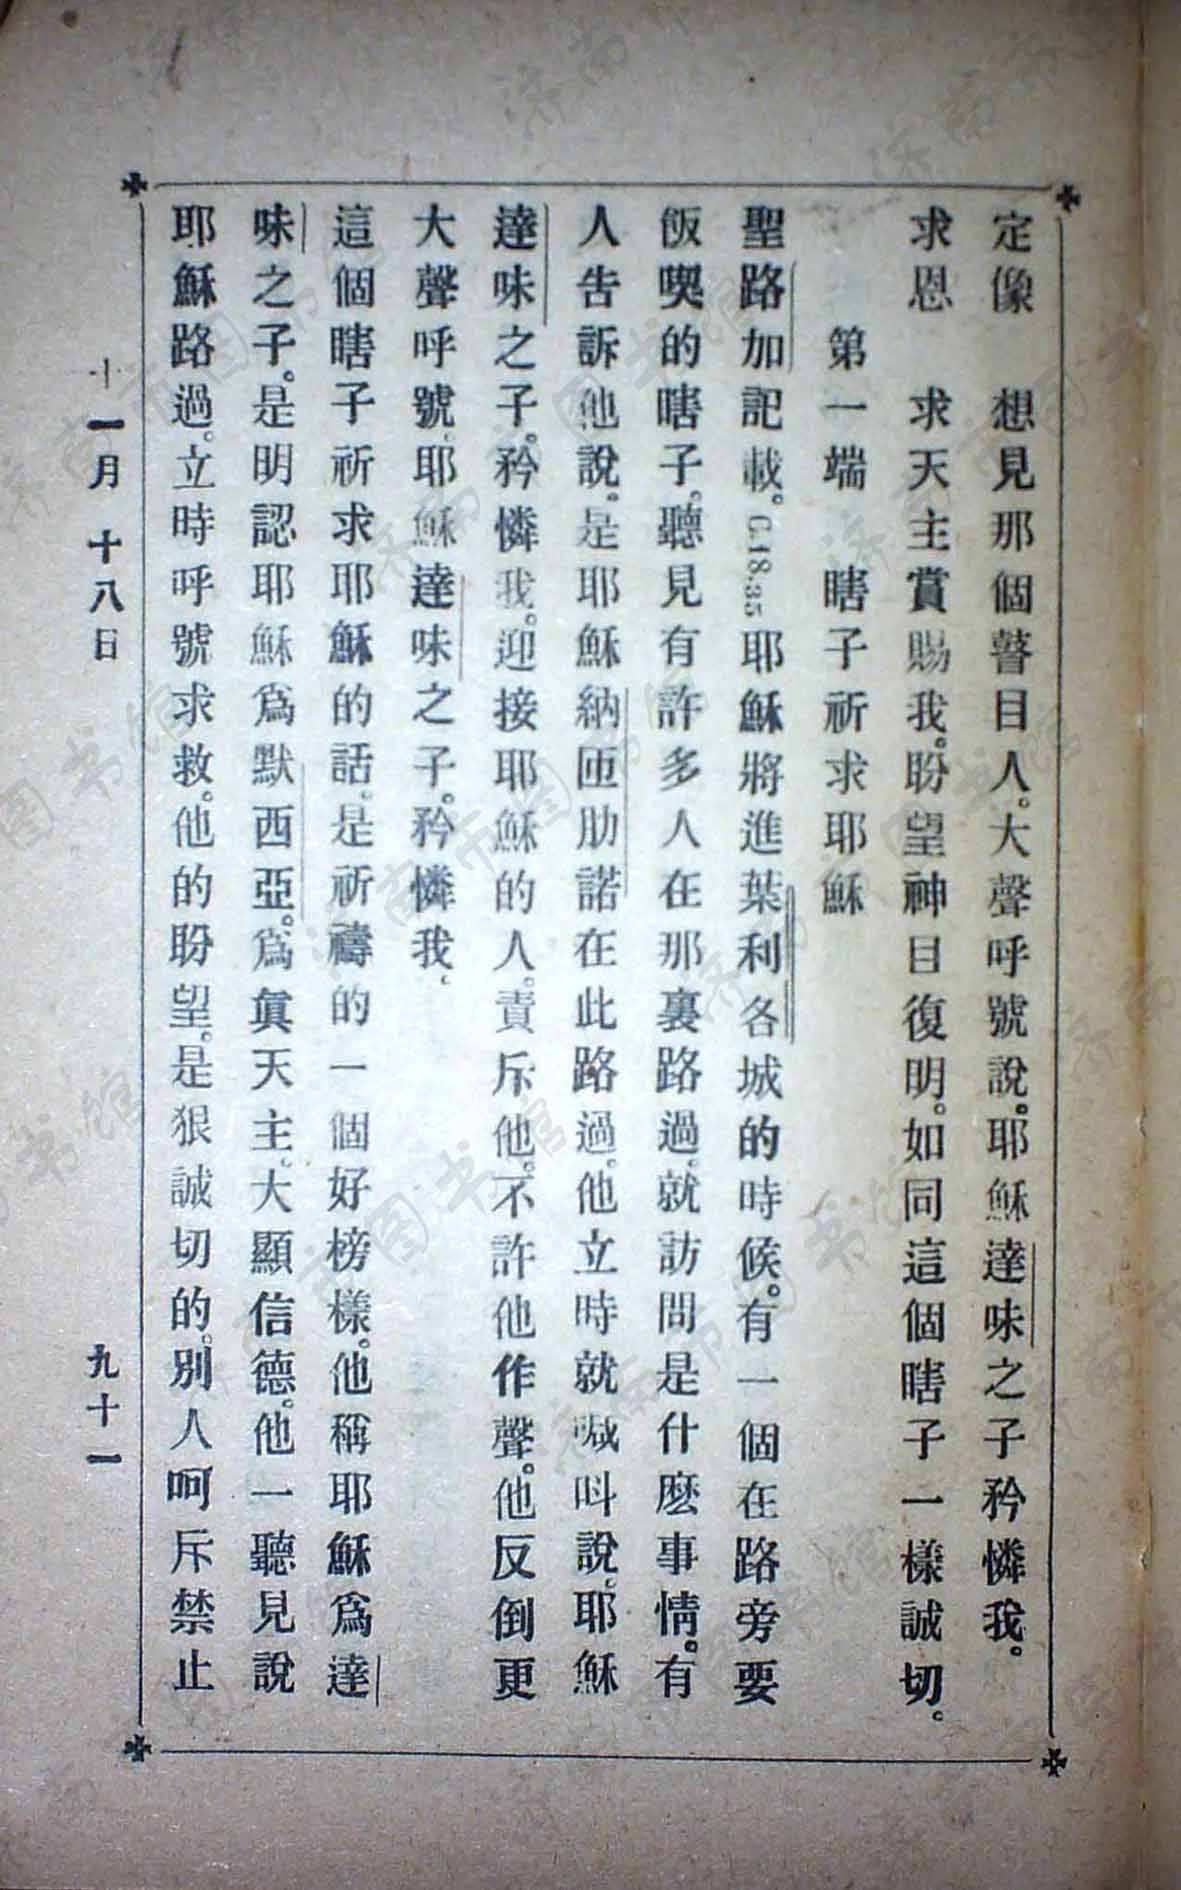 定像　想見那個瞽目人。大聲呼號說。耶穌達味之子矜憐我。
求恩　求天主賞賜我。盼望神目復明。如同這個瞎子一樣誠切。
第一端　瞎子祈求耶穌
聖路加記載。C.18.35耶穌將進葉利各城的時候。有一個在路旁要
飯喫的瞎子。聽見有許多人在那裏路過。就訪問是什麼事情。有
人告訴他說。是耶穌納匝肋諾在此路過。他立時就喊呌說。耶穌
達味之子。矜憐我。迎接耶穌的人。責斥他。不許他作聲。他反倒更
大聲呼號。耶穌達味之子。矜憐我、
這個瞎子祈求耶穌的話。是祈禱的一個好榜樣。他稱耶穌爲達
味之子。是明認耶穌爲默西亞。爲眞天主。大顯信德。他一聽見說
耶穌路過。立時呼號求救。他的盼望。是狠誠切的。別人呵斥禁止
十一月十八日
九十一
济南市图书馆